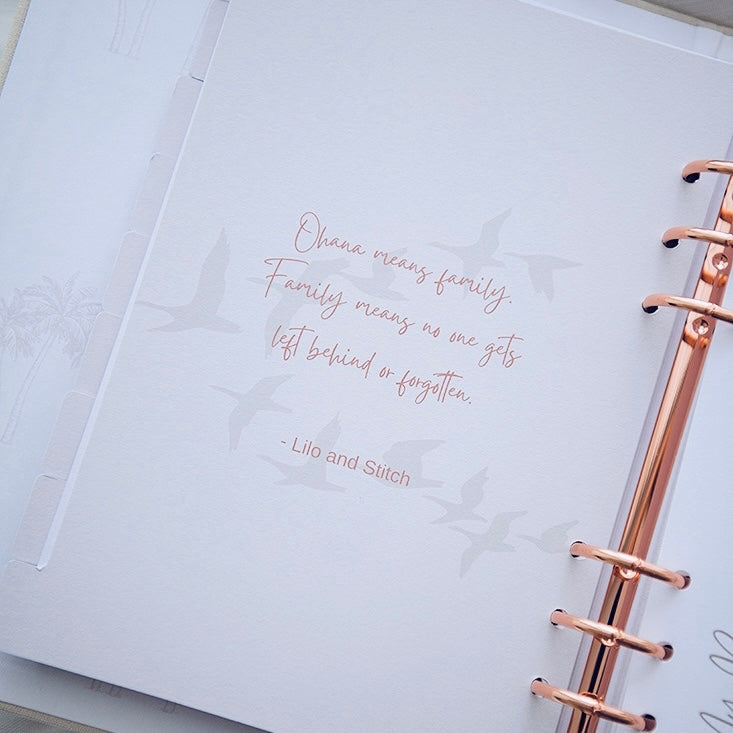 Ohana means family.
Family means no one gets
left behind or forgotten.
- Lilo and Stitch